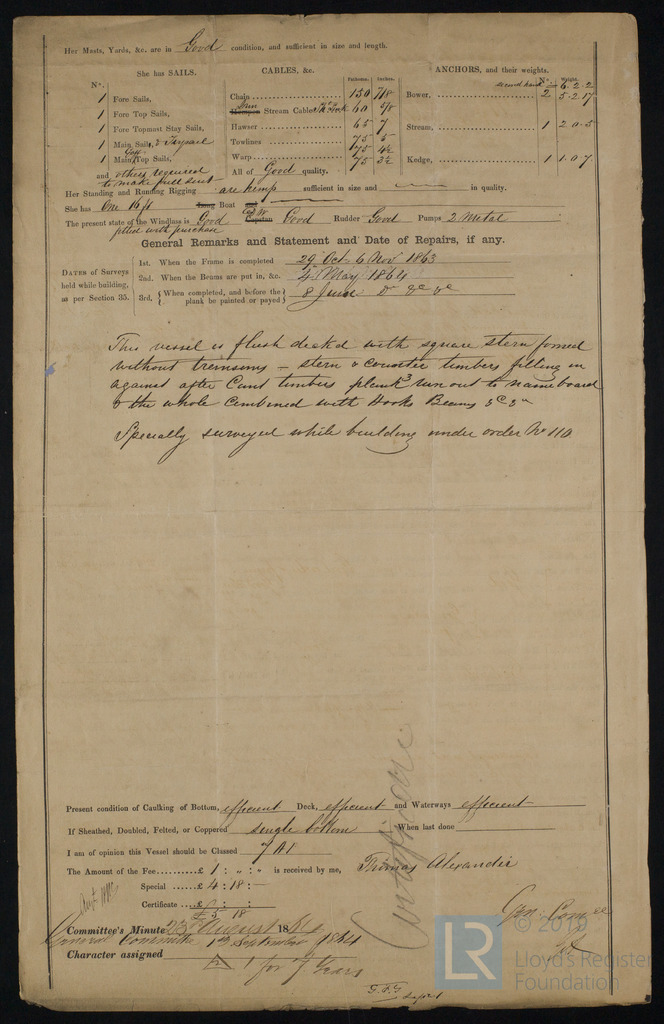 Her Masts, Yards, &c. are in Good condition, and sufficient in size and length.
She has SAILS.
CABLES, &c.
ANCHORS, and their weights.
N°.
Fathoms. Inches.
N°. Weight.
1 Fore Sails,
1 Fore Top Sails,
1 Fore Topmast Stay Sails,
1 Main Sails, & Trysail
1 Main Gaff Top Sails,
and others required
to make full sent
Chain 150 7/8
Stream Cable 60 5/8
Hawser 65 7
Towlines 75 5
75 4½
Warp 75 3½
All of Good quality.
second hand 6.2.2
Bower, 2 5.2.17
Stream, 1 2.0.5
Kedge, 1 1.0.7
Her Standing and Running Rigging are hemp sufficient in size and in quality.
She has One 16 ft Long Boat and
The present state of the Windlass is Good Capstan Good Rudder Good Pumps 2 Metal
fitted with purchase
General Remarks and Statement and Date of Repairs, if any.
DATES of Surveys held while building, as per Section 35.
1st. When the Frame is completed 29 Oct 6 Nov 1863
2nd. When the Beams are put in, &c. 4 May 1864
3rd. { When completed, and before the plank be painted or payed } 8 June
This vessel is flush decked with square stern formed
without transoms – stern & counter timbers fitting in
against after Cant timbers plank run out to name board
& the whole combined with Hooks Beams &c &c
Specially surveyed while building under order No 110
Present condition of Caulking of Bottom, efficient Deck, efficient and Waterways efficient
If Sheathed, Doubled, Felted, or Coppered single bottom When last done
I am of opinion this Vessel should be Classed 7 A1
The Amount of the Fee £ 1 : " : " is received by me, Thomas Alexander
Special £ 4 : 18 : –
Certificate
£5 18
Certificate
Committee's Minute 23 August 1864
General Committee 1st September 1864
Character assigned A 1 for 7 Years
Gen. Comee
G.F.G
Sept 1
© 2019
LR
Lloyd's Register
Foundation